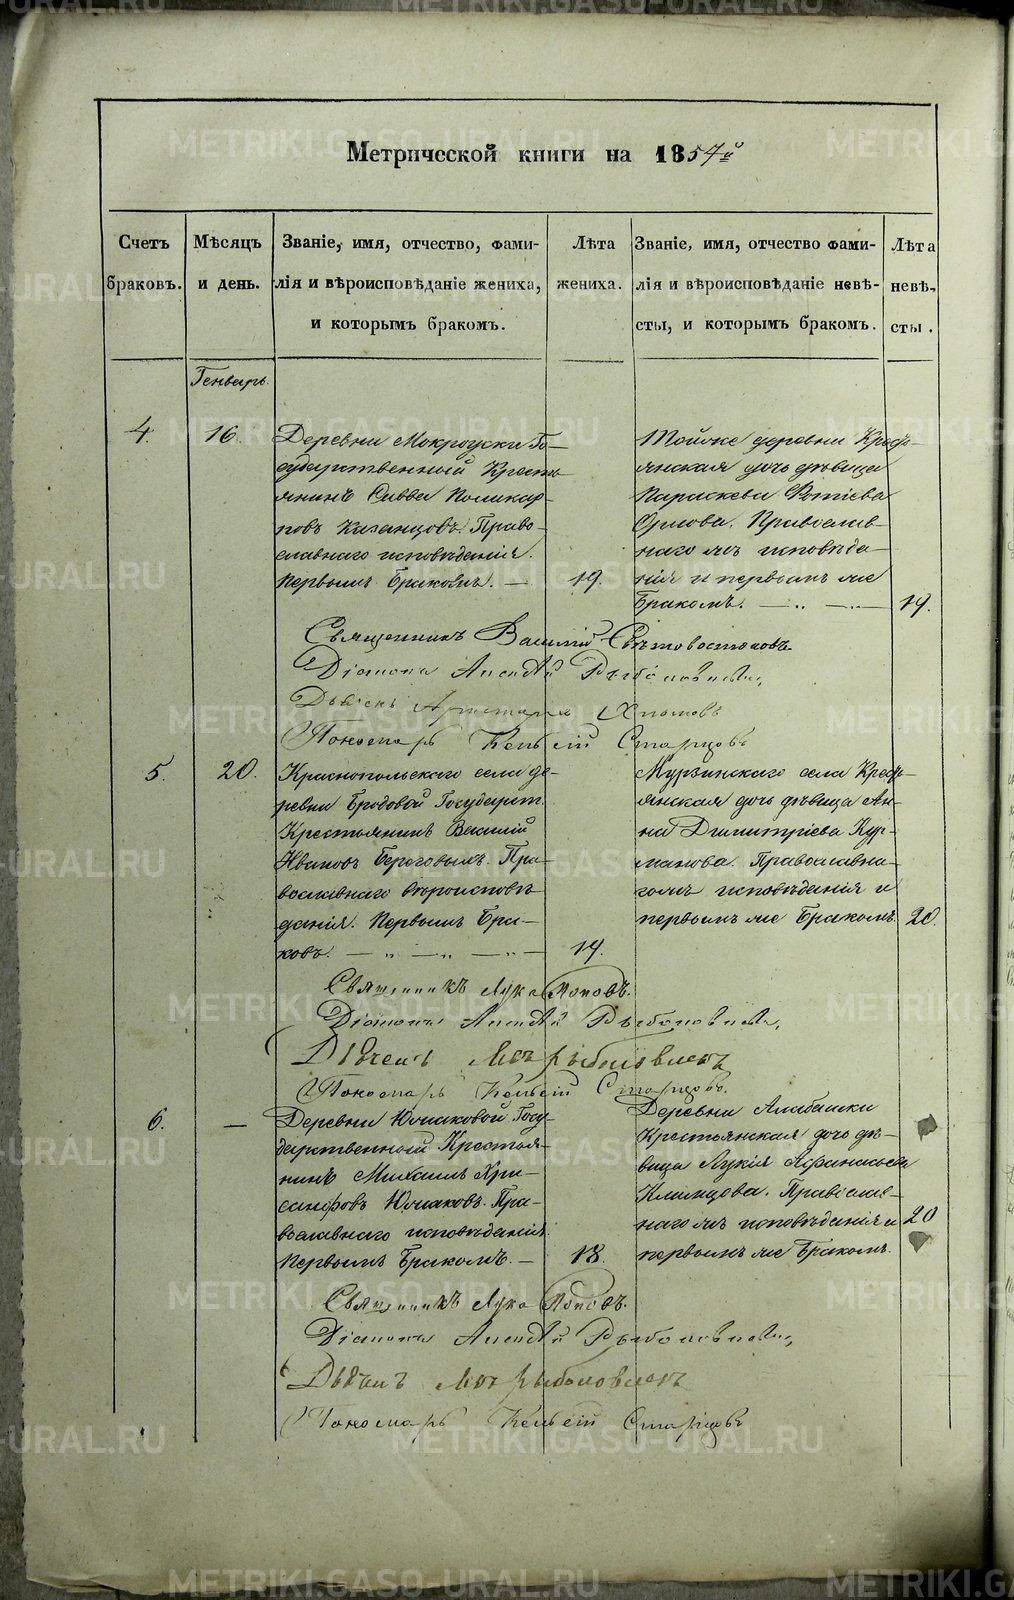 Метрической книги на 1857й
Счетъ браковъ.
Мѣсяцъ и день.
Званіе, имя, отчество, фами-
лія и вѣроисповѣданіе жениха,
и которымъ бракомъ.
Лѣта жениха.
Званіе, имя, отчество фами-
лія и вѣроисповѣданіе невѣ-
сты, и которымъ бракомъ.
Лѣта невѣ-
сты.
Генварь.
4.
16.
Деревни Мокроуски Го-
сударственный Кресть-
янинъ Савва Поликар-
повъ Казанцовъ. Право-
славнаго исповѣданія.
Первымъ Бракомъ. —
19.
Тойже деревни Кресть-
янская дочь дѣвица
Параскева Фотіева
Орлова. Православ-
наго же исповѣда-
нія и первымъ же
Бракомъ. —
19.
Священникъ Василій Свѣтовостоковъ.
Діаконъ Алексѣй
Дьячекъ Аристархъ
Пономарь Старцовъ
5.
20.
Краснопольскаго села де-
ревни Бродовой Государст.
Крестьянинъ Василій
Ивановъ Береговыхъ. Пра-
вославнаго вѣроисповѣ-
данія. Первымъ Бра-
комъ. —
19.
Мурзинскаго села Кресть-
янская дочь дѣвица Ан-
на Димитріева Кур-
манова. Православна-
гожъ исповѣданія и
первымъ же Бракомъ.
20.
Священникъ Лука Поповъ.
Діаконъ Алексѣй
Дьячекъ
Пономарь Старцовъ.
6.
—
Деревни Южаковой Госу-
дарственный Крестья-
нинъ Михаилъ Хри-
санфовъ Южаковъ. Пра-
вославнаго исповѣданія.
Первымъ Бракомъ. —
18.
Деревни Алабашки
Крестьянская дочь дѣ-
вица Лукія Афанасьева
Клинцова. Православ-
наго же исповѣданія и
первымъ же Бракомъ.
20
Священникъ Лука Поповъ.
Діаконъ Алексѣй
Дьячекъ
Пономарь Старцовъ
METRIKI.GASO-URAL.RU